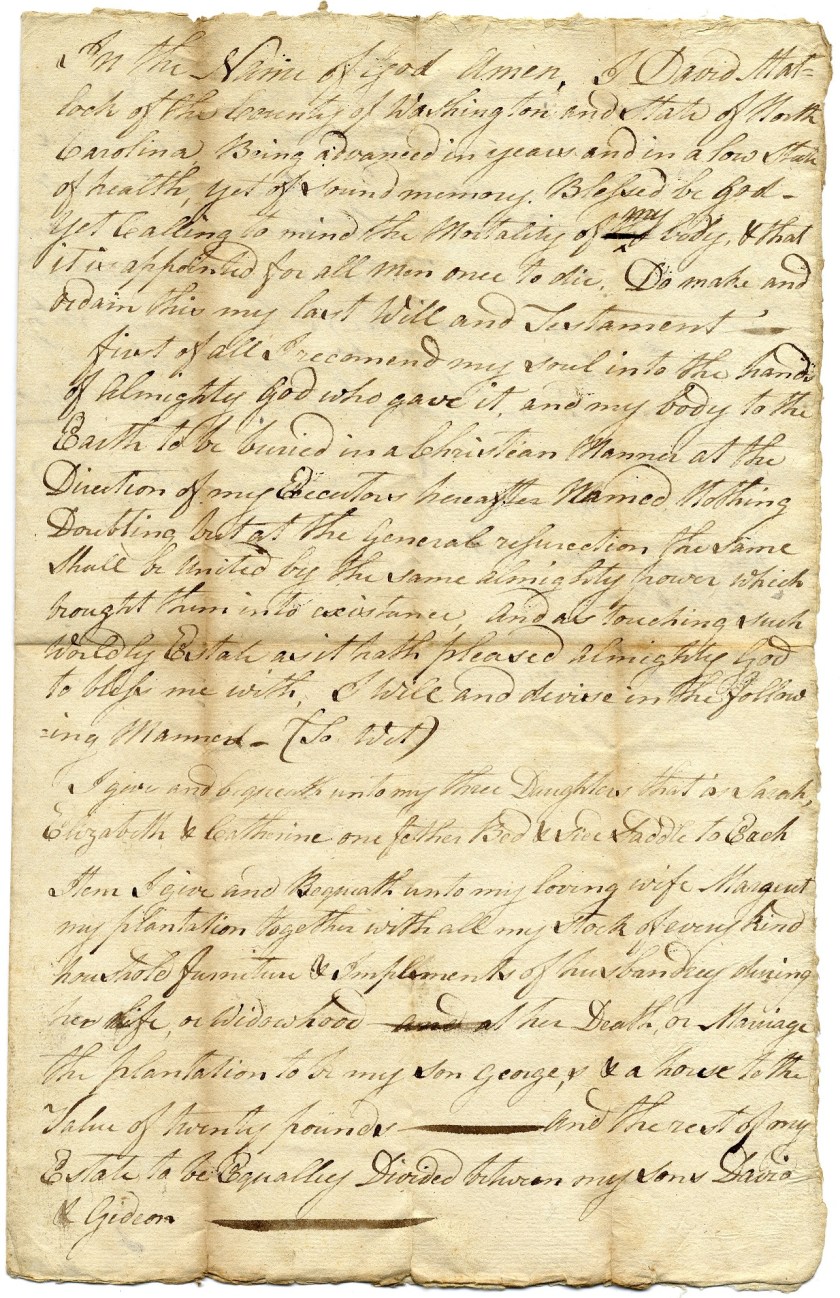 In the Name of God Amen, I David Mat=
lock of the County of Washington and State of North
Carolina, Being advanced in years and in a low State
of health, yet of sound memory. Blessed be God -
yet Calling to mind the Mortality of my body, & that
it is appointed for all men once to die. Do make and
ordain this my last Will and Testament -
first of all I recomend my soul into the hands
of Almighty God who gave it, and my body to the
Earth to be buried in a Christian Manner at the
Direction of my Executors hereafter Named, Nothing
Doubting but at the General resurection the same
Shall be United by the same almighty power which
brought them into existance, and as touching such
Worldly Estate as it hath pleased Almighty God
to bless me with, I Will and devise in the follow
=ing Manner - (To Wit)
I give and bequeath unto my three Daughters that is Sarah,
Elizabeth & Catherine one fether Bed & side Saddle to Each
Item I give and Bequeath unto my loving wife Margent
my plantation together with all my Stock of every kind
houshold furniture & Implements of husbandry during
her life, or Widowhood and at her Death, or Marriage
the plantation to be my son George,s & a horse to the
Value of twenty pounds and the rest of my
Estate to be Equalley Divided between my sons David
& Gideon